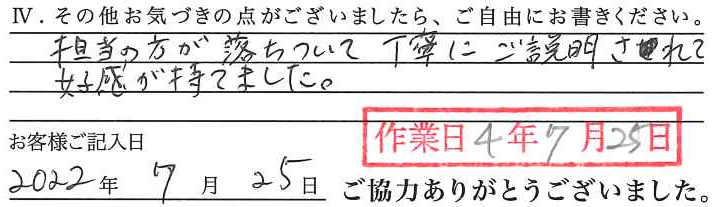 Ⅳ．その他お気づきの点がございましたら、ご自由にお書きください。
担当の方が落ちついて丁寧にご説明されて
好感が持てました。
作業日4年7月25日
お客様ご記入日
2022年 7月 25日 ご協力ありがとうございました。